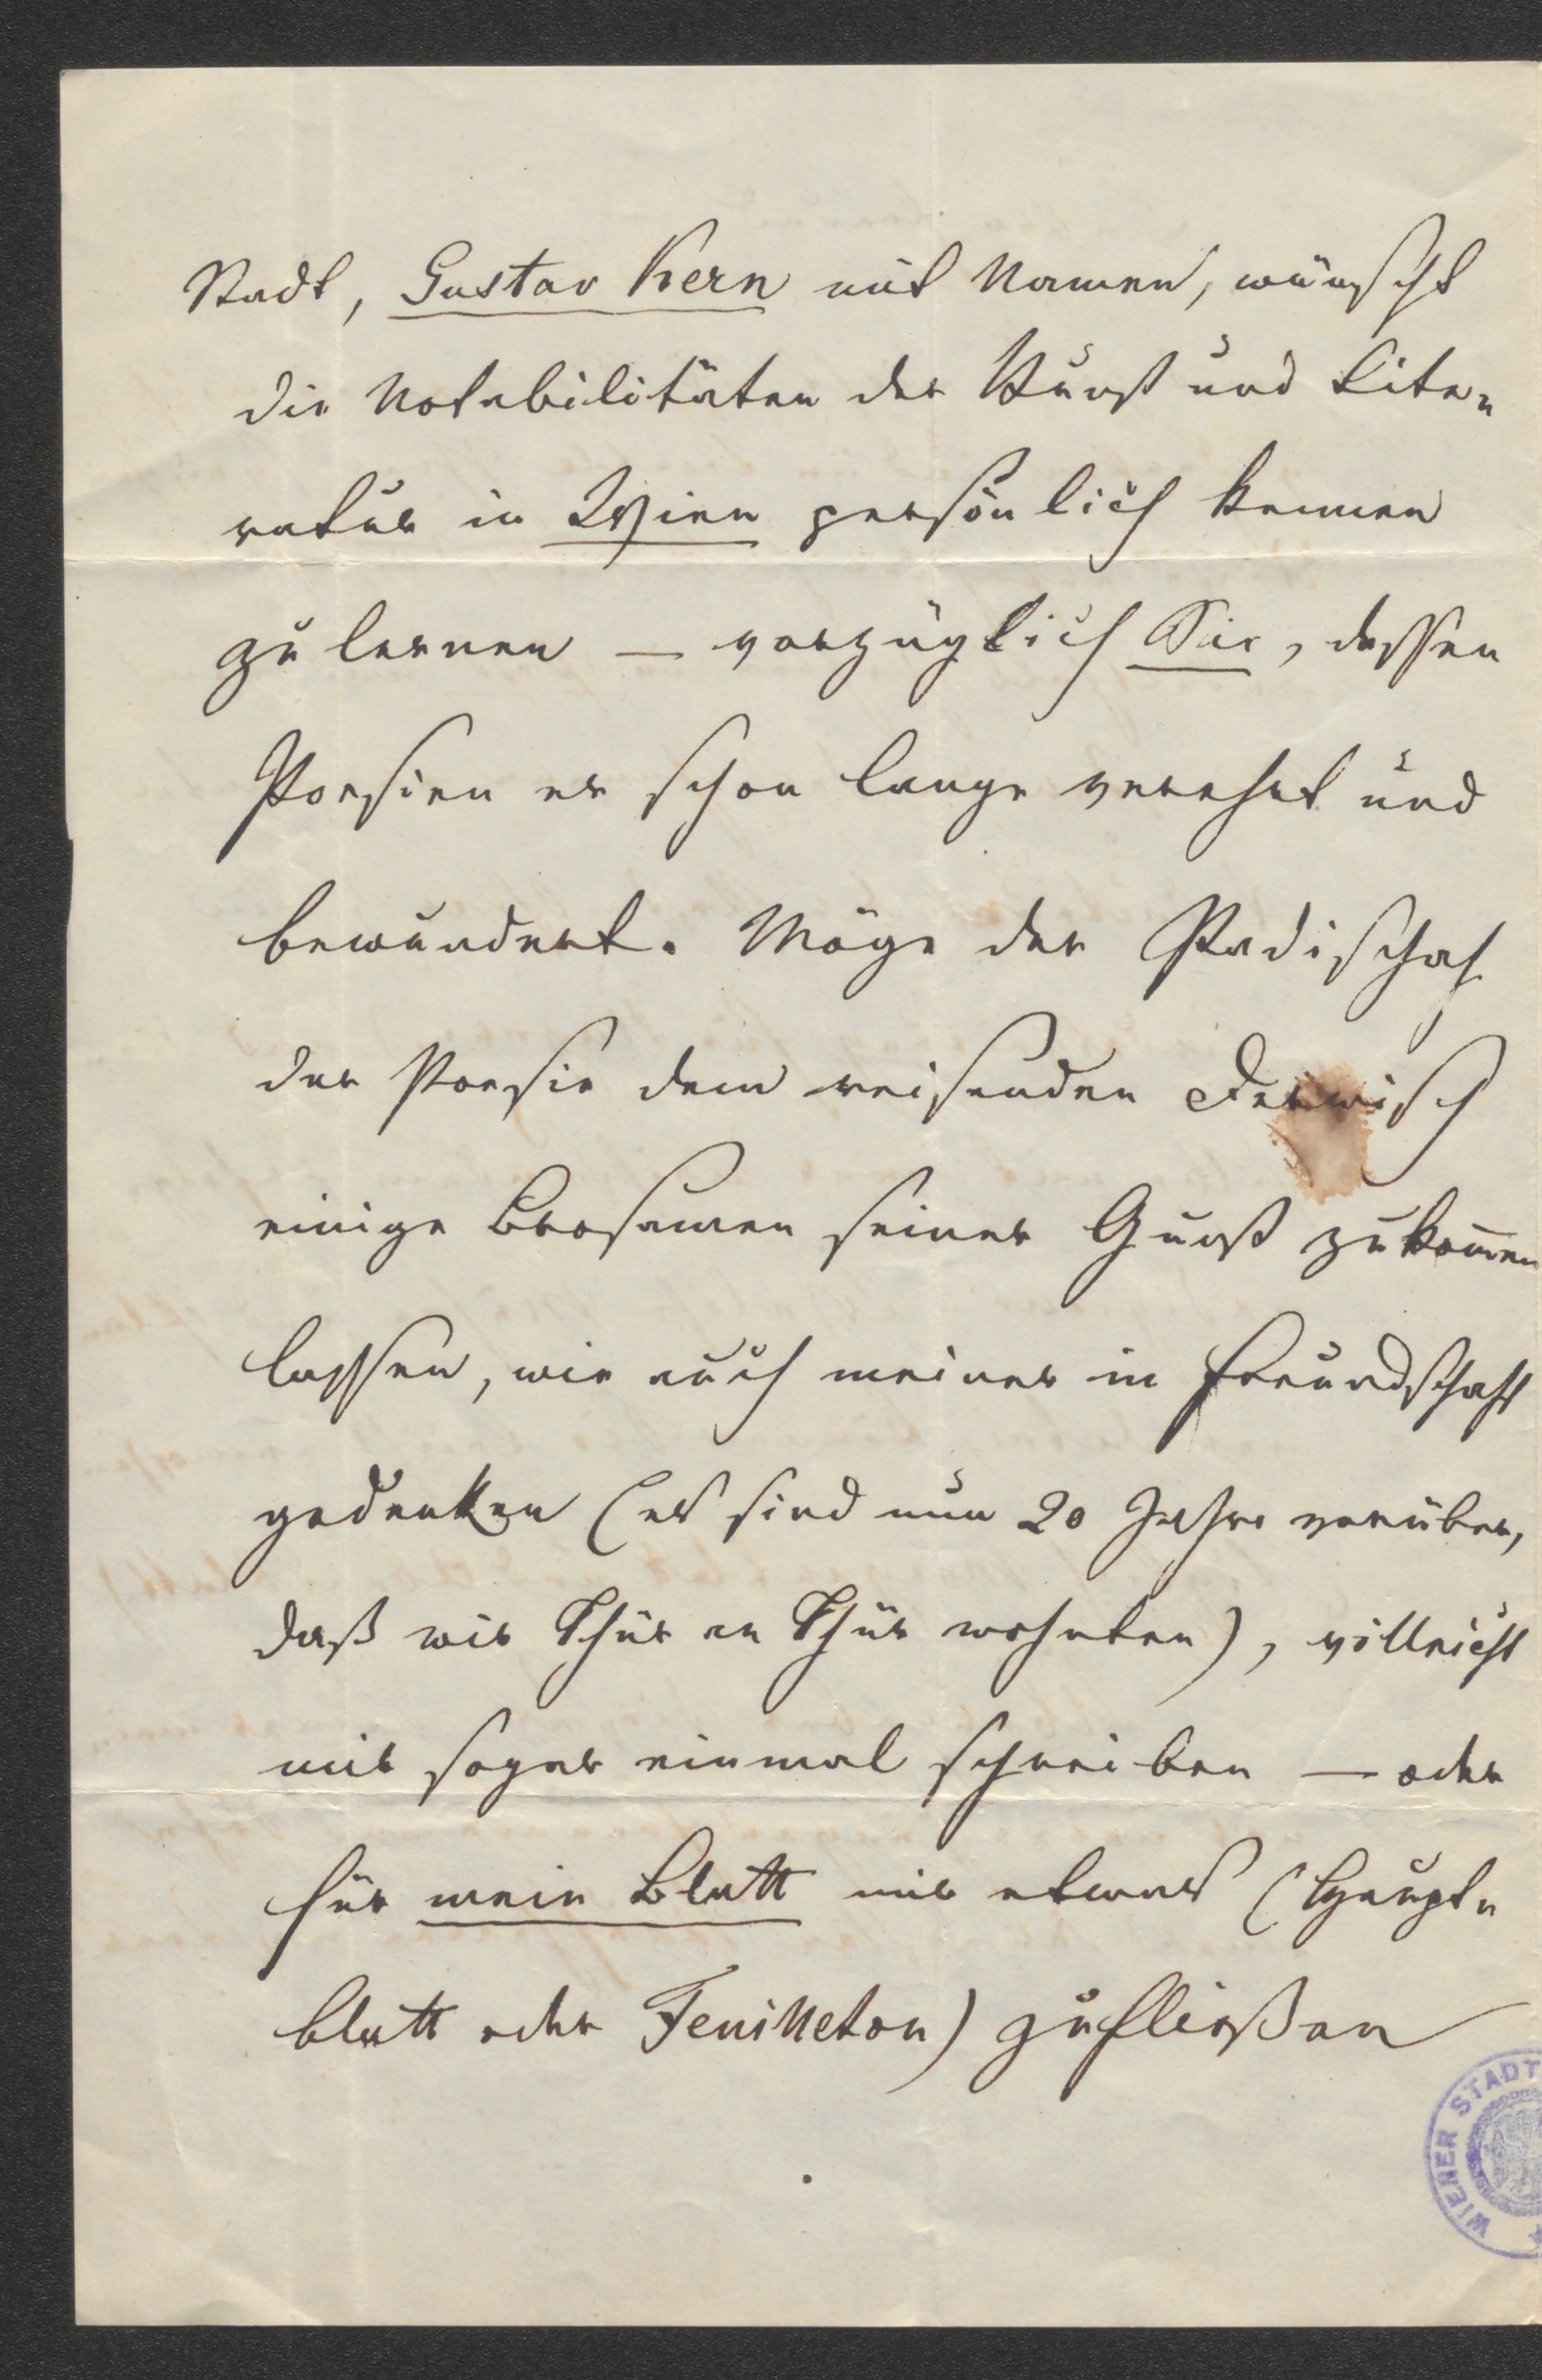 Stadt, Gustav Kern mit Namen, wünscht
die Notabilitäten der Kunst und Lite-
ratur in Wien persönlich kennen
zu lernen — vorzüglich Sie, dessen
Poesien er schon lange verehrt und
bewundert. Möge der Padischah
der Poesie dem reisenden Derwisch
einige Brosamen seiner Gunst zukom̅en
lassen, wie auch meiner in Freundschaft
gedenken (es sind nun 20 Jahre vorüber,
daß wir Thür an Thür wohnten), villeicht
mir sogar einmal schreiben — oder
für mein Blatt mir etwas (Haupt-
blatt oder Feuilleton) zufließen
WIENER STADT